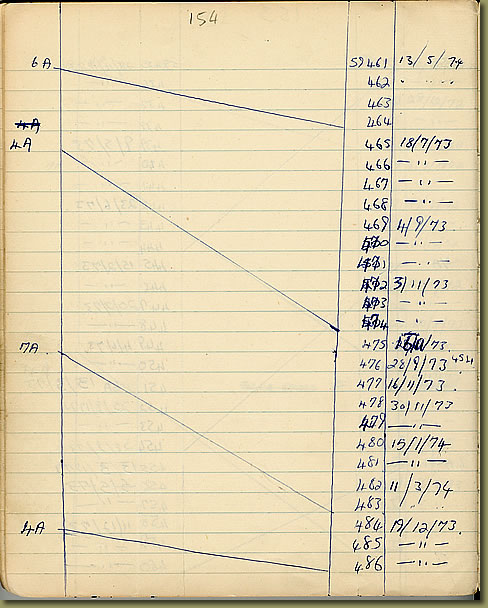 154
6A 59461 13/5/74
462 " "
463
464
4A
4A 465 18/7/73
466 — " —
467 — " —
468 — " —
469 4/9/73
470 — " —
471 — " —
472 3/11/73
473 — " —
474 — " —
7A 475 /73
476 28/9/73
477 16/11/73
478 30/11/73
479 — " —
480 15/1/74
481 — " —
482 11/3/74
483 " "
4A 484 19/12/73
485 — " —
486 — " —